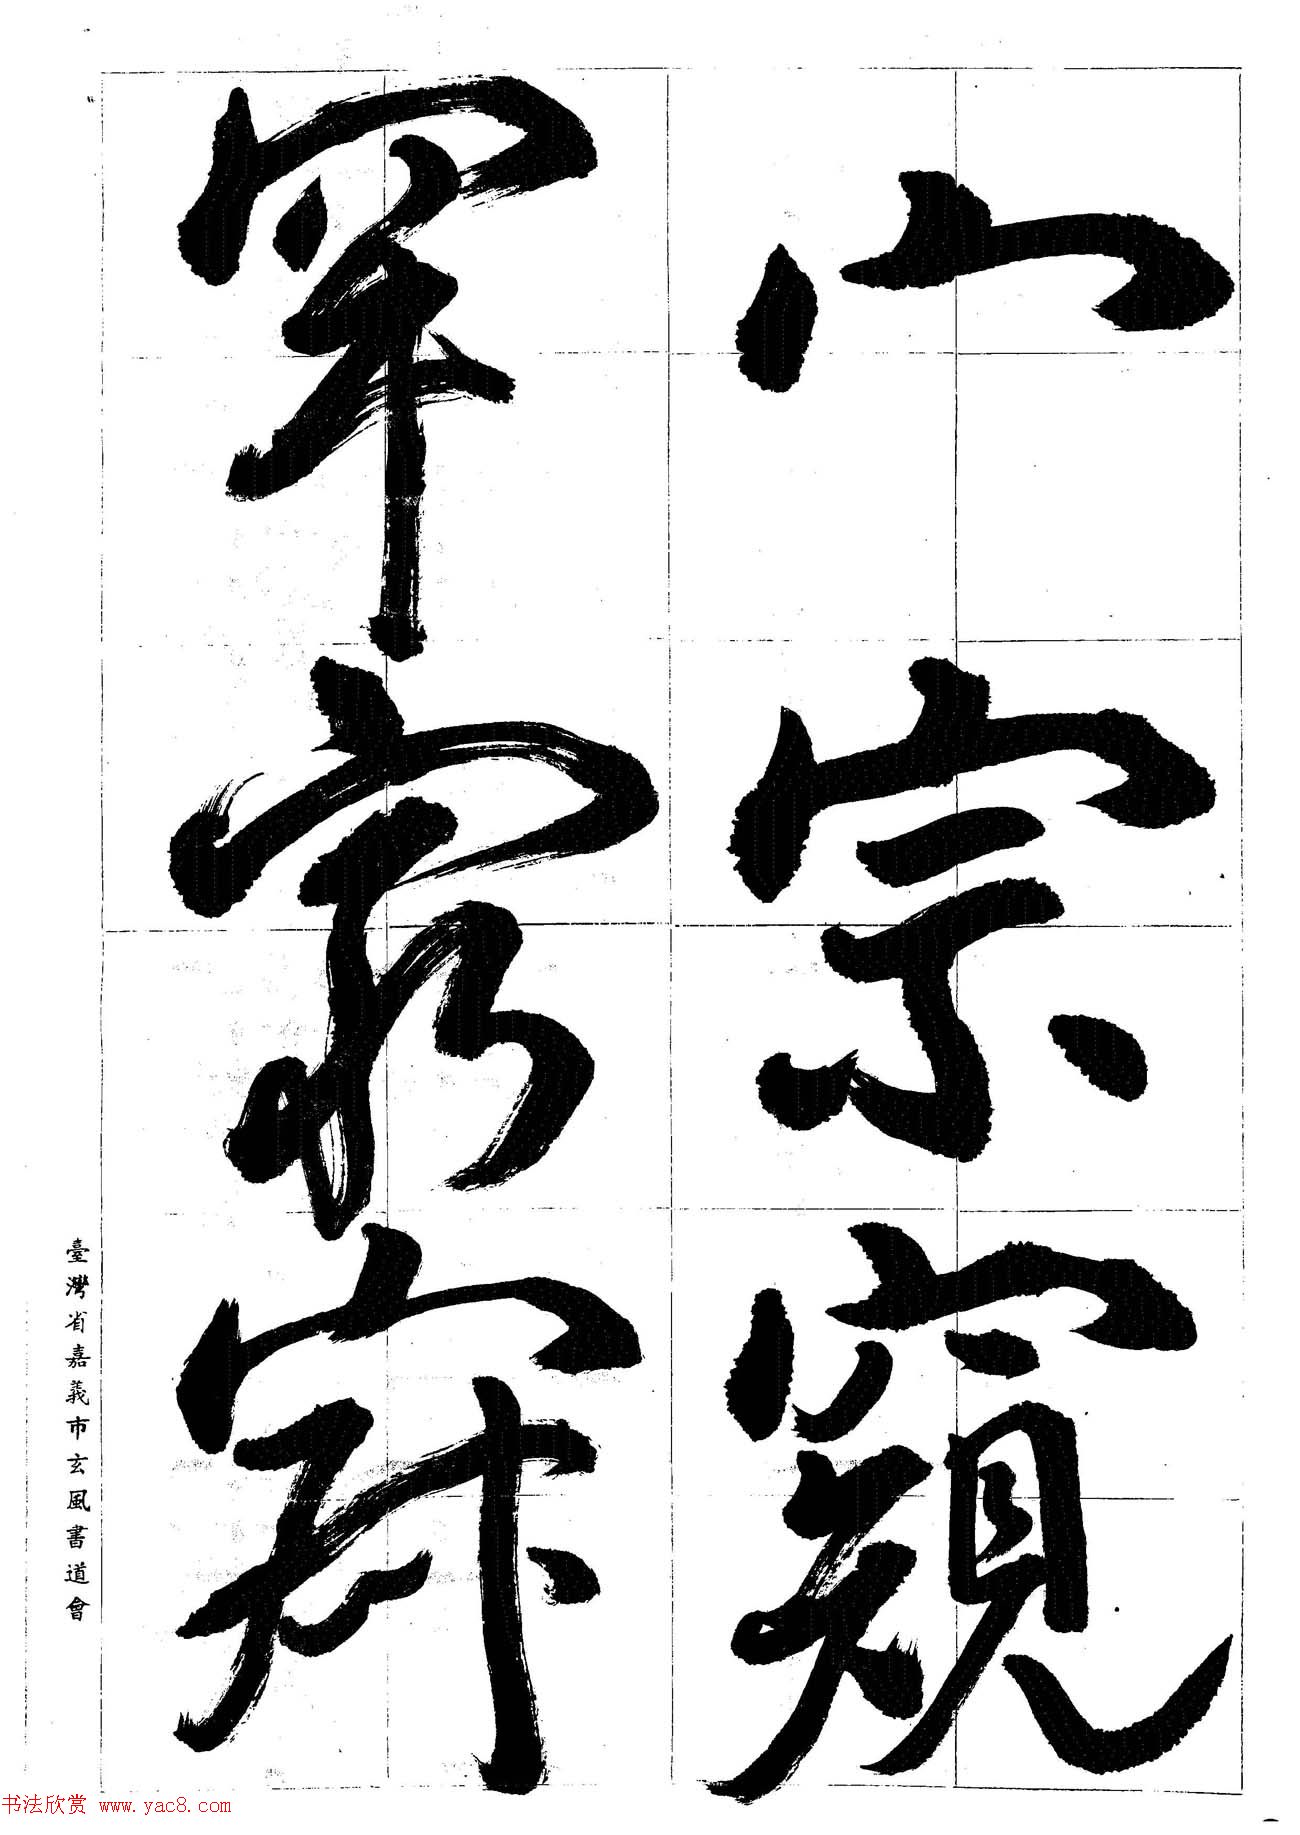 宀宗窺
罕
臺灣省嘉義市玄風書道會
书法欣赏 www.yac8.com